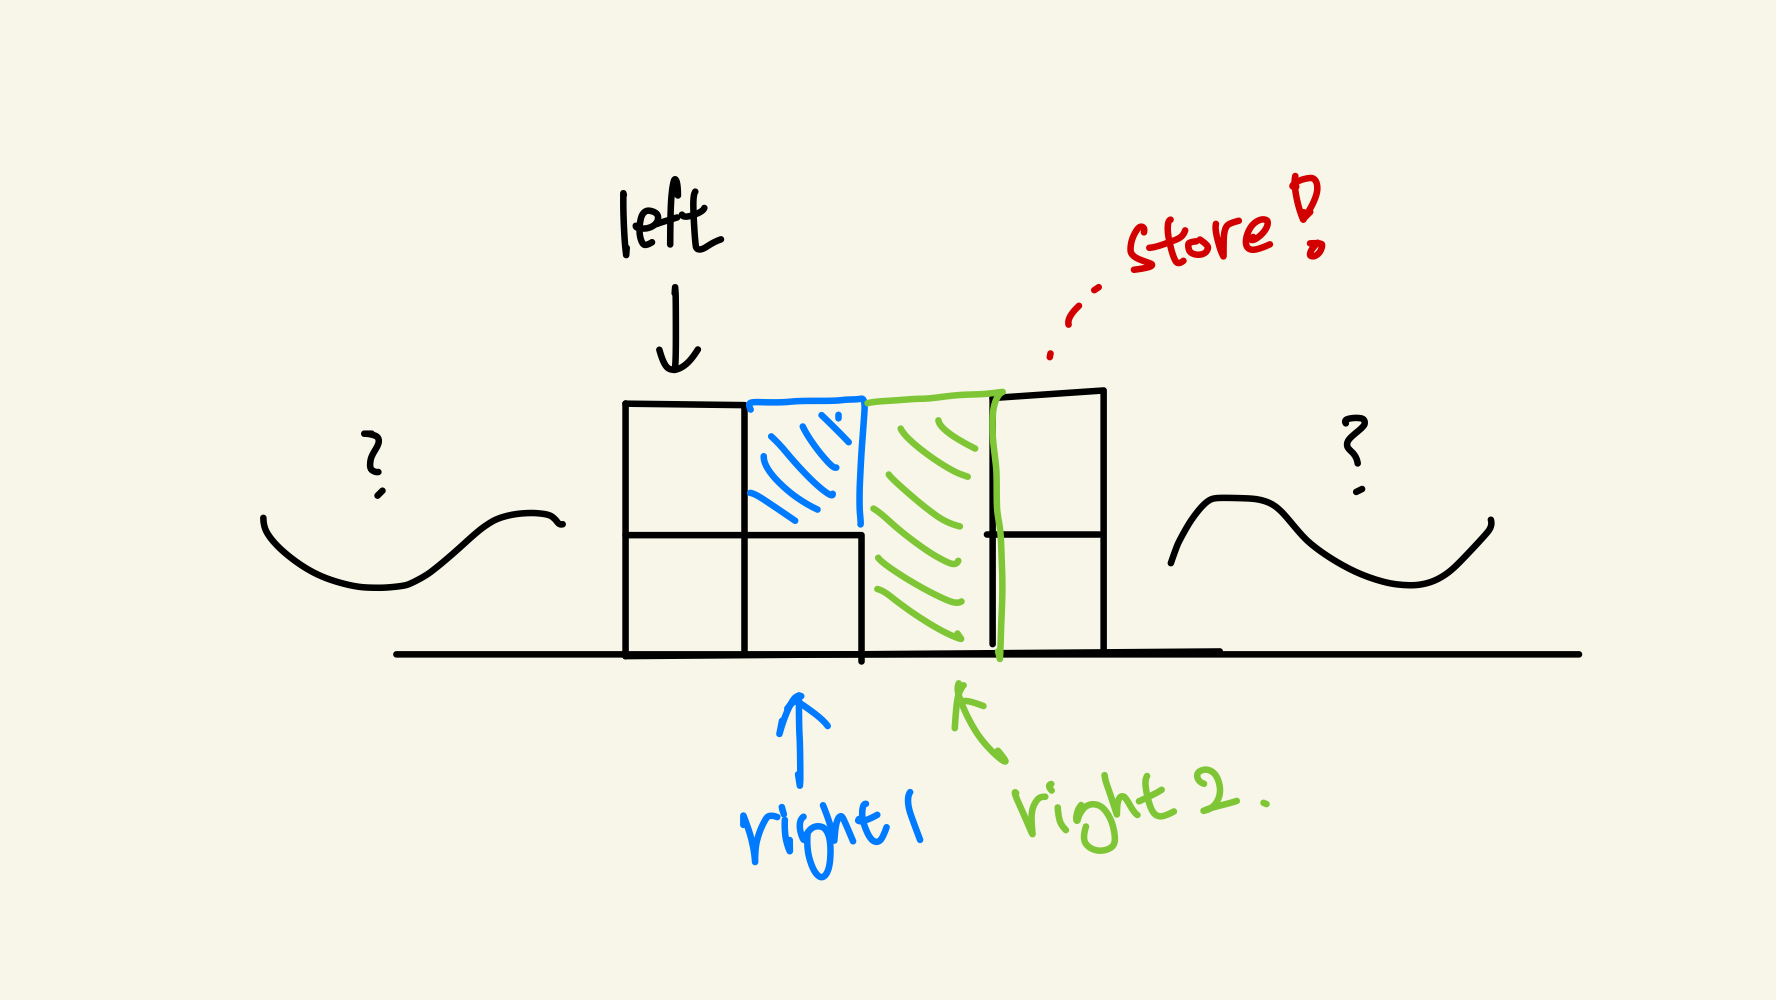 left
store!
?
?
right 1
right 2.